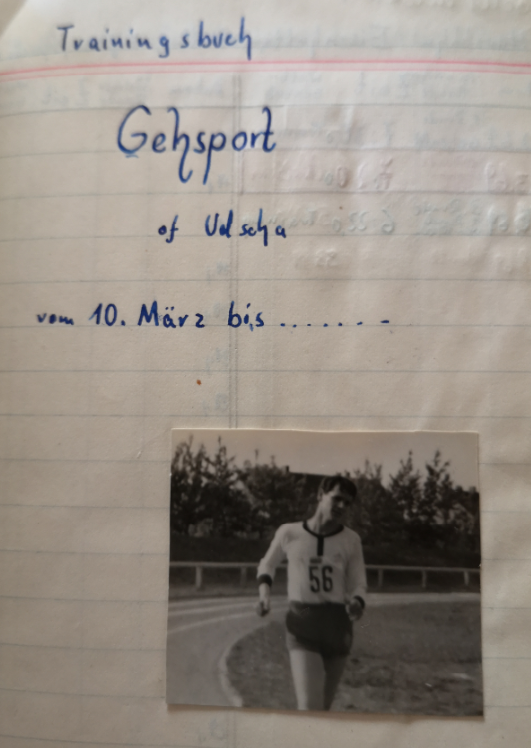 Trainingsbuch
Gehsport
of Udscha
vom 10. März bis .......-
56